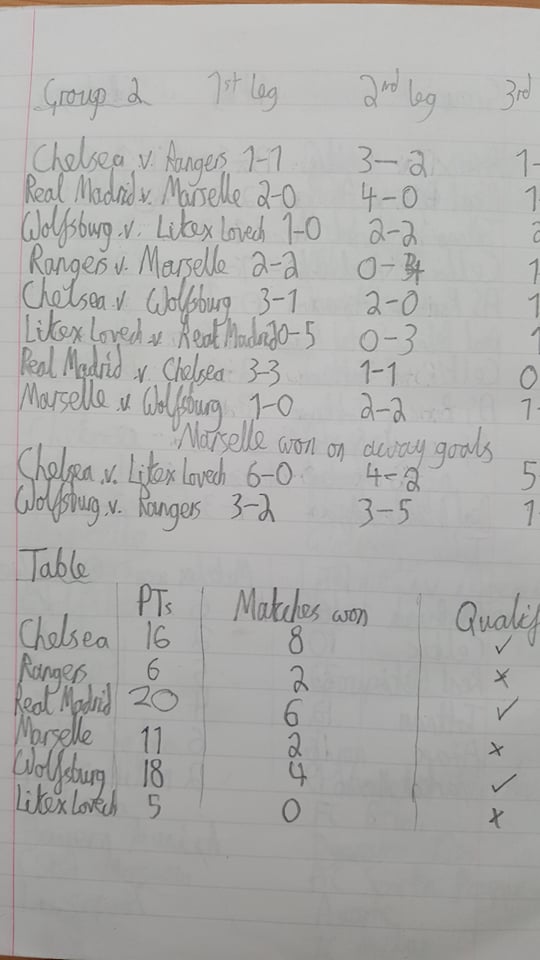 Group 2 1st leg 2nd leg 3rd
Chelsea v. Rangers 1-1 3-2 1-
Real Madrid v. Marselle 2-0 4-0 1
Wolfsburg v. Litex Lovech 1-0 2-2 2
Rangers v. Marselle 2-2 0-4 1
Chelsea v Wolfsburg 3-1 2-0 1
Litex Lovech v Real Madrid 0-5 0-3 1
Real Madrid v Chelsea 3-3 1-1 0
Marselle v Wolfsburg 1-0 2-2 1-
Marselle won on away goals
Chelsea v. Litex Lovech 6-0 4-2 5
Wolfsburg v. Rangers 3-2 3-5 1
Table
PTs Matches won Qualif
Chelsea 16 8 ✓
Rangers 6 2 x
Real Madrid 20 6 ✓
Marselle 11 2 x
Wolfsburg 18 4 ✓
Litex Lovech 5 0 x